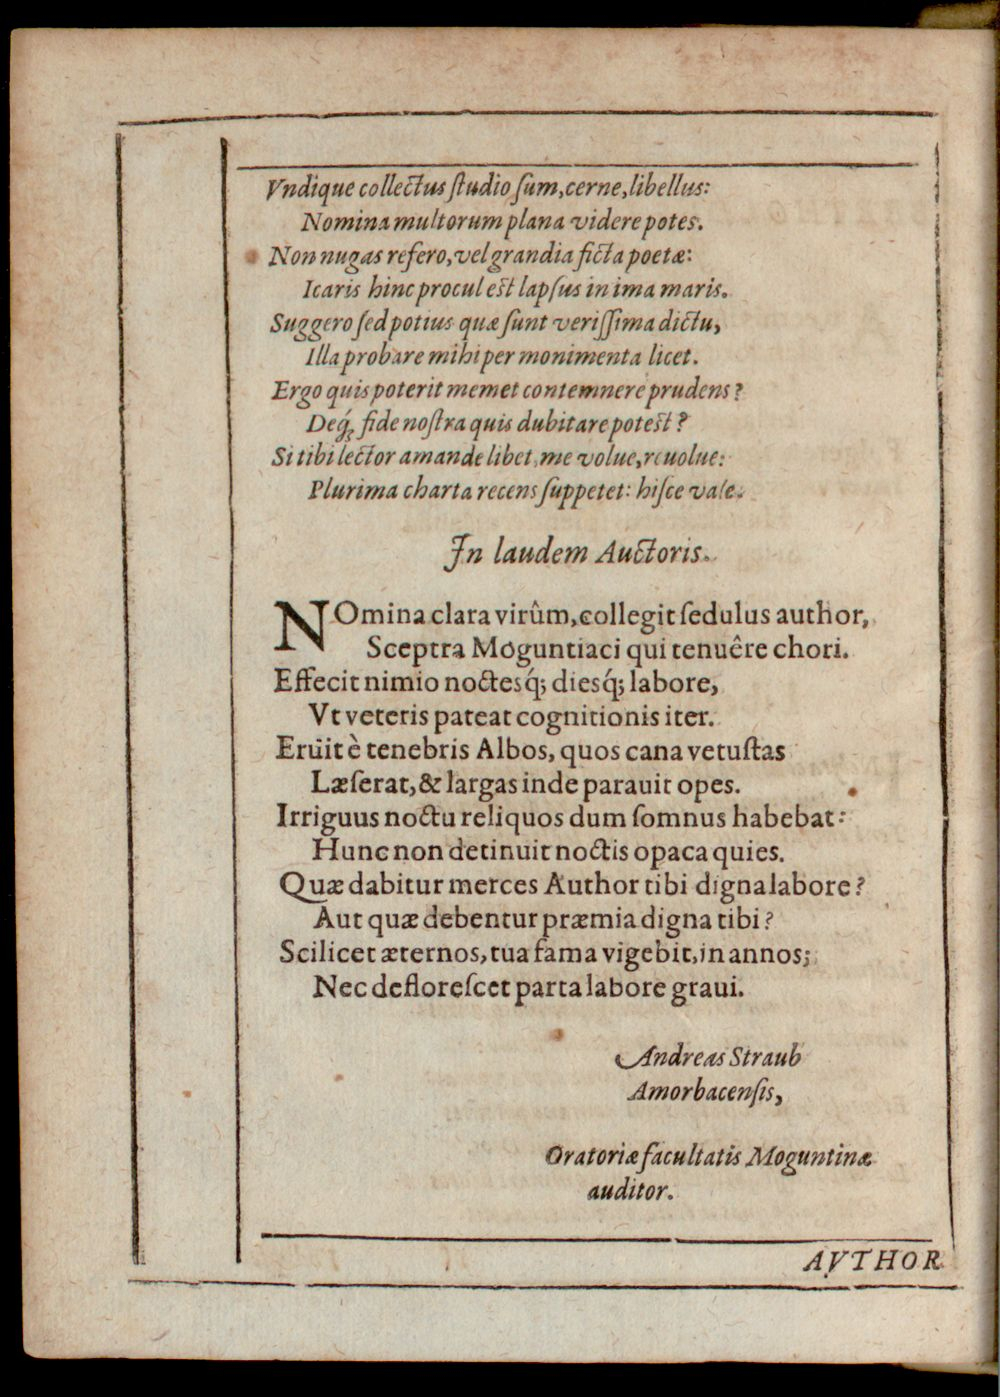 Vndique collectus ſtudio ſum, cerne, libellus:
Nomina multorum plana videre potes.
Non nugas refero, vel grandia ficta poetæ:
Icaris hinc procul eſt lapſus in ima maris.
Suggero ſed potius quæ ſunt veriſſima dictu,
Illa probare mihi per monimenta licet.
Ergo quis poterit memet contemnere prudens?
Deq́; fide noſtra quis dubitare poteſt?
Si tibi lector amande libet, me volue, reuolue:
Plurima charta recens ſuppetet: hiſce vale.
In laudem Auctoris.
NOmina clara virûm, collegit ſedulus author,
Sceptra Moguntiaci qui tenuêre chori.
Effecit nimio noctesq́; diesq́; labore,
Vt veteris pateat cognitionis iter.
Erüit è tenebris Albos, quos cana vetuſtas
Læſerat, & largas inde parauit opes.
Irriguus noctu reliquos dum ſomnus habebat:
Hunc non detinuit noctis opaca quies.
Quæ dabitur merces Author tibi digna labore?
Aut quæ debentur præmia digna tibi?
Scilicet æternos, tua fama vigebit, in annos;
Nec defloreſcet parta labore graui.
Andreas Straub
Amorbacenſis,
Oratoriæ facultatis Moguntinæ
auditor.
AVTHOR